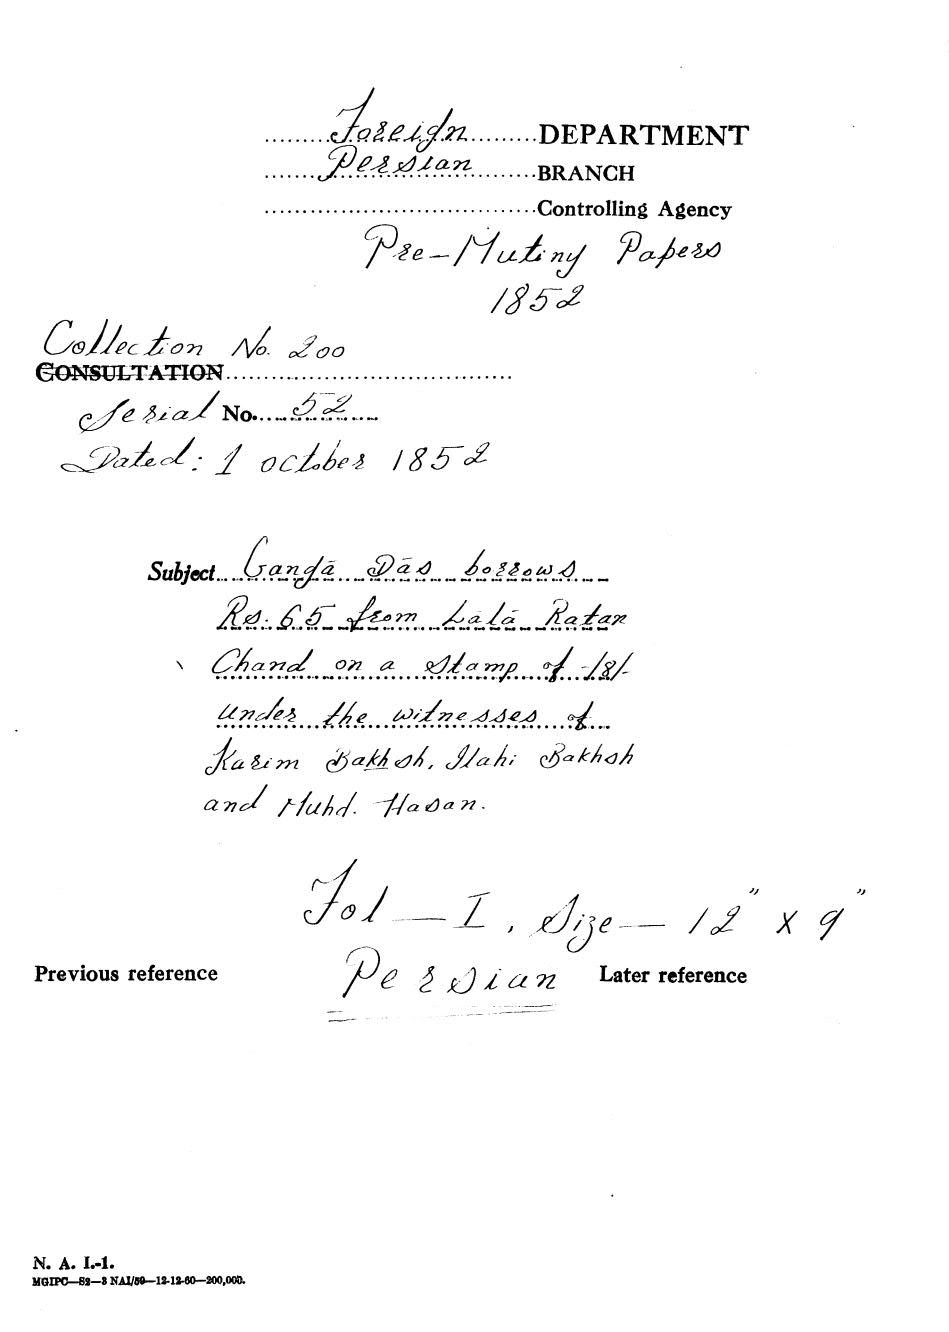 Foreign DEPARTMENT
Persian BRANCH
Controlling Agency
Pre-Mutiny Papers
1852
Collection No. 200
CONSULTATION
Serial No. 52
Dated: 1 october 1852
Subject Gangā Dās borrows
Rs. 65 from Lālā Ratan
Chand on a stamp of -/8/-
under the witnesses of
Karim Bakhsh, Ilahi Bakhsh
and Muhd. Hasan.
Fol — I, Size — 12" X 9"
Previous reference Persian Later reference
N. A. I.-1.
MGIPC—S2—3 NAI/59—12-12-60—200,000.